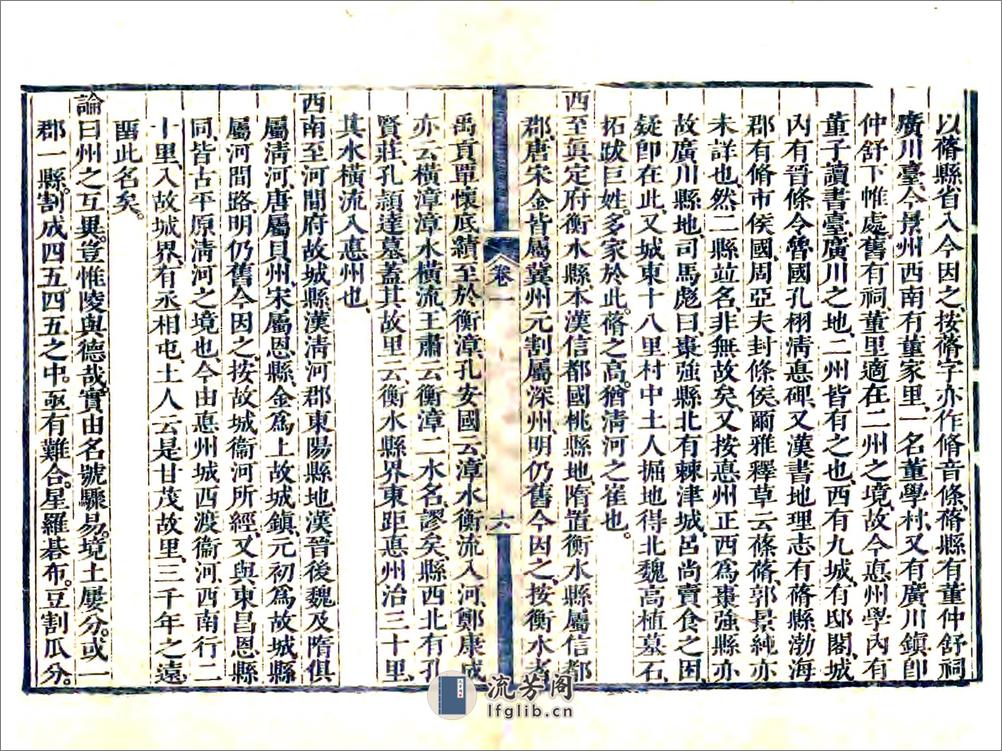 以蓨縣省入今因之按蓨字亦作脩音條蓨縣有董仲舒祠
廣川臺今景州西南有董家里一名董學村又有廣川鎮卽
仲舒下帷處舊有祠董里適在二州之境故今惪州學內有
董子讀書臺廣川之地二州皆有之也西有九城有邸閣城
內有晉條令魯國孔栩清惪碑又漢書地理志有蓨縣渤海
郡有脩市侯國周亞夫封條侯爾雅釋草云蓧蓨郭景純亦
未詳也然二縣竝名非無故矣又按惪州正西爲棗強縣亦
故廣川縣地司馬彪曰棗強縣北有棘津城呂尚賣食之困
疑卽在此又城東十八里村中土人掘地得北魏高植墓石
拓跋巨姓多家於此蓨之高猶淸河之崔也
西至眞定府衡水縣本漢信都國桃縣地隋置衡水縣屬信都
郡唐宋金皆屬冀州元割屬深州明仍舊今因之按衡水者
禹貢覃懷底績至於衡漳孔安國云漳水衡流入河鄭康成
亦云橫漳漳水橫流王肅云衡漳二水名謬矣縣西北有孔
賢莊孔頴達墓蓋其故里云衡水縣界東距惪州治三十里
其水橫流入惪州也
西南至河間府故城縣漢淸河郡東陽縣地漢晉後魏及隋俱
屬淸河唐屬貝州宋屬恩縣金爲上故城鎮元初爲故城縣
屬河間路明仍舊今因之按故城衞河所經又與東昌恩縣
同皆古平原淸河之境也今由惪州城西渡衞河西南行二
十里入故城界有丞相屯土人云是甘茂故里三千年之遠
畱此名矣
論曰州之互異豈惟陵與德哉實由名號驟易境土屢分或一
郡一縣割成四五四五之中亟有難合星羅碁布豆割瓜分
卷一
六
流芳阁
lfglib.cn